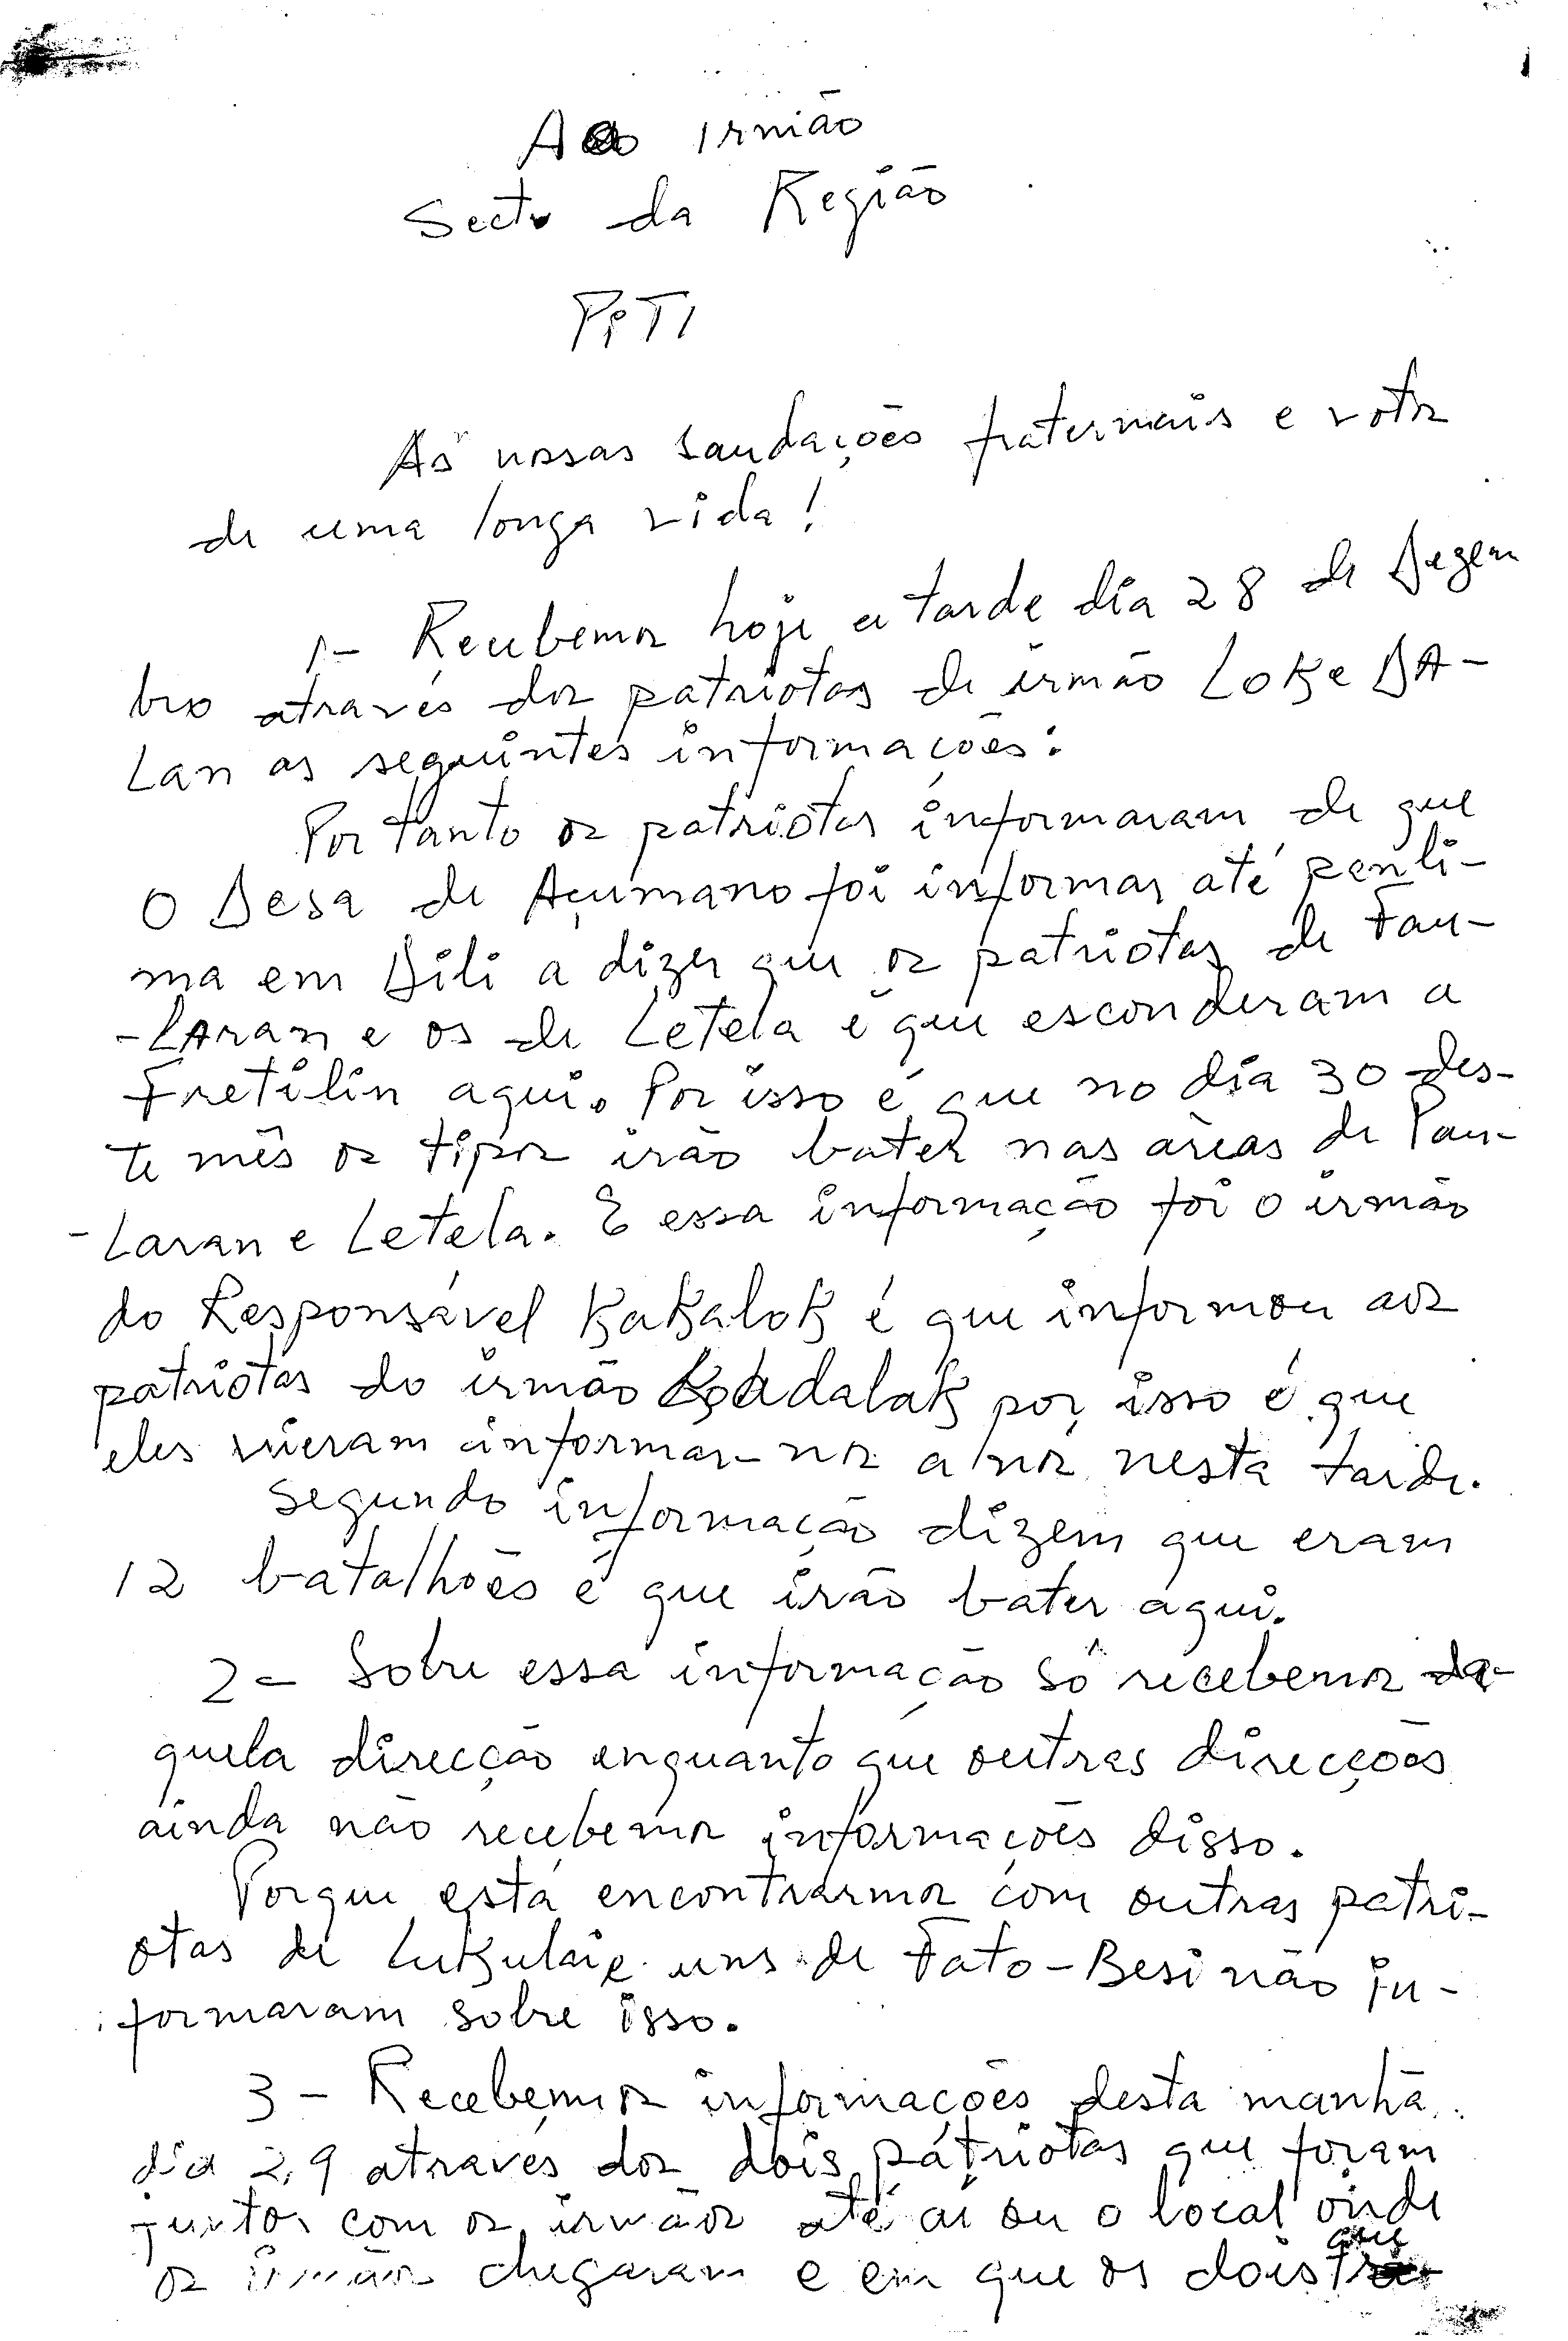 Ao Irmião
Secto da Região
PiTI
As nossas saudações fraternais e votos
de uma longa vida!
1- Recebemos hoje a tarde dia 28 de Dezem
bro através dos patriotas de irmão Loke DA-
Lan as seguintes informações:
Por tanto os patriotas informaram de que
O Desa de Açumano foi informar até penli-
ma em Dili a dizer que os patriotas de Fau-
-LAran e os de Letela é que esconderam a
Fretilin aqui. Por isso é que no dia 30 des-
te mês os tipos irão bater nas àreas de Pau-
-Laran e Letela. E essa informação foi o irmão
do Responsável KaKaloK é que informou aos
patriotas do irmão dalaK por isso é que
eles vieram informar-nos a nós nesta tarde.
Segundo informação dizem que eram
12 batalhões é que irão bater aqui.
2- Sobre essa informação só recebemos da-
quela direcção enquanto que outras direcções
ainda não recebemos informações disso.
Porque está encontrarmos com outras patri-
otas de LuKulai e uns de Fato-Besi não in-
formaram sobre isso.
3- Recebemos informações desta manhã
dia 29 através dos dois patriotas que foram
juntos com os irmãos até aí ou o local onde
os irmãos chegaram e em que os dois que